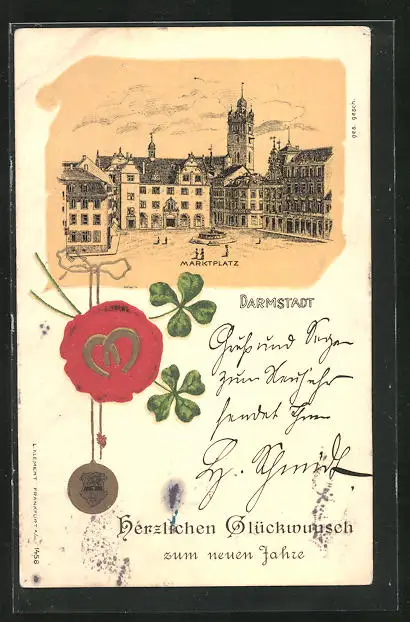 ges. gesch.
MARKTPLATZ
DARMSTADT
Gruß und Segen
zum Neujahr
sendet Ihnen
Schmidt
L. KLEMENT FRANKFURT A.M. 1458
Herzlichen Glückwunsch
zum neuen Jahre